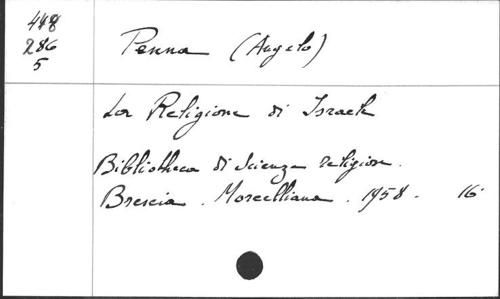 448
286
5
Penna (Angelo)
La Religione di Israele
Bibliotheca di Scienze religion.
Brescia. Morcelliana. 1958. 16